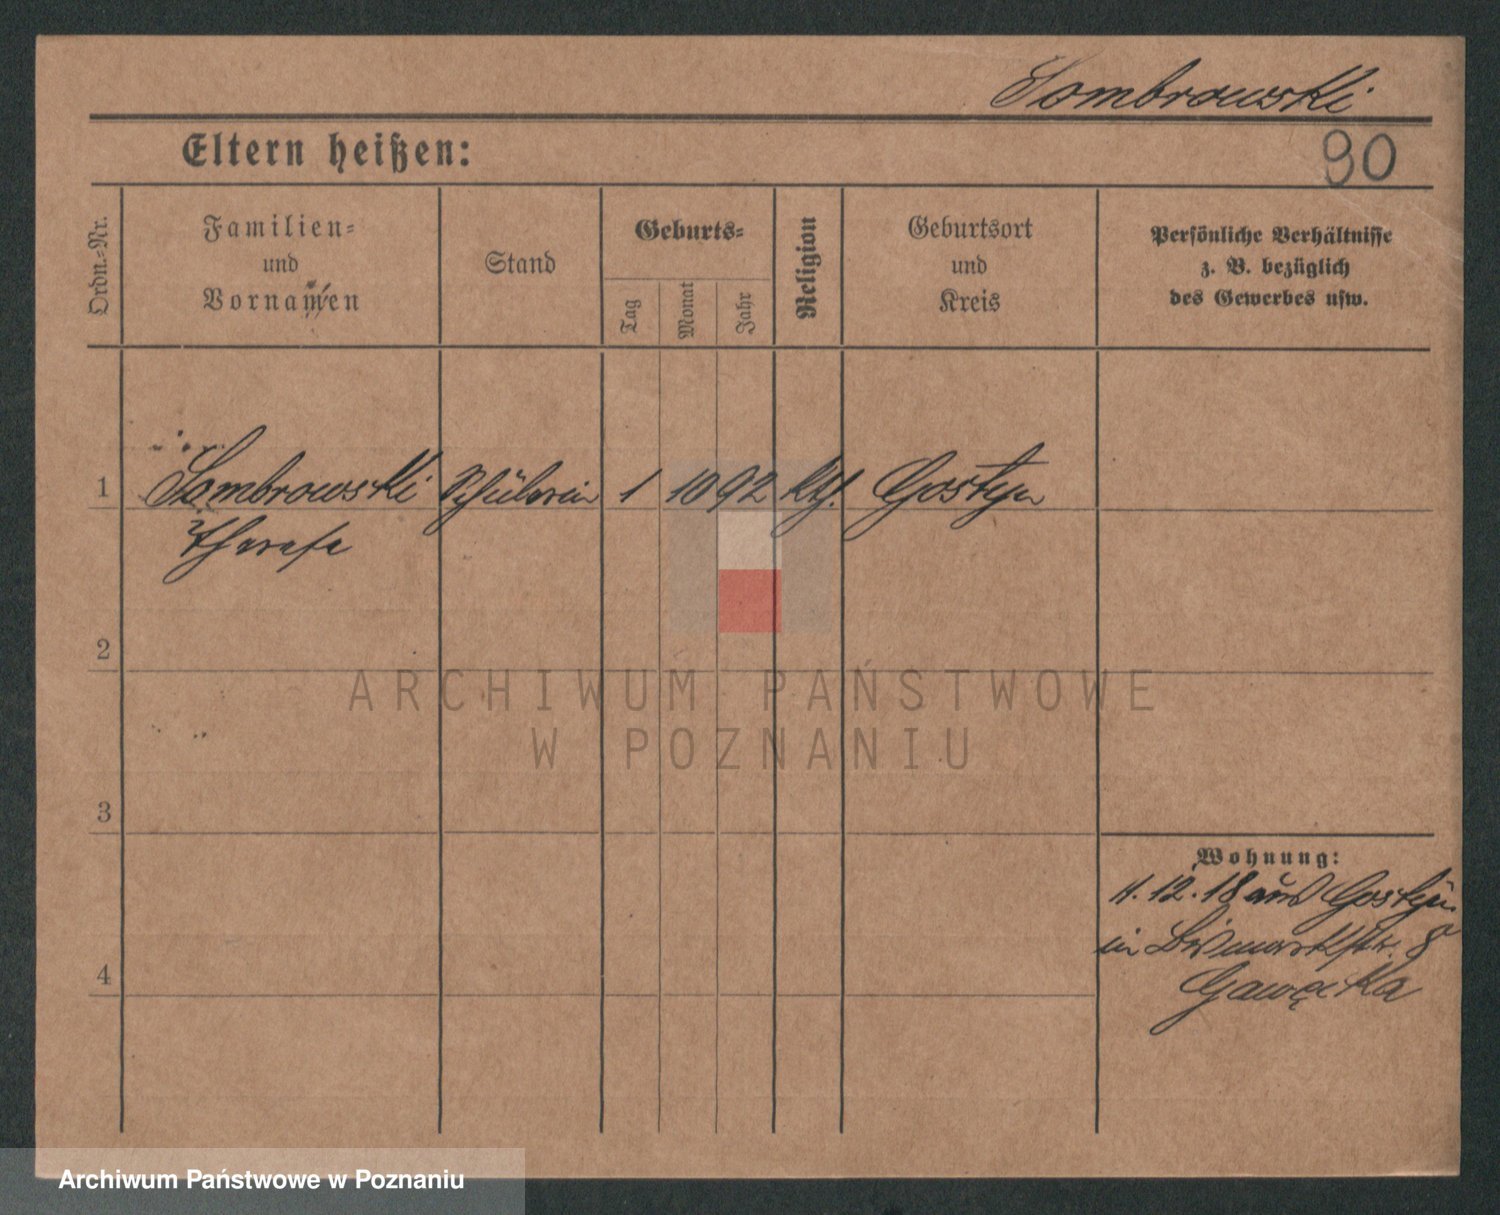 Dombrowski
90
Eltern heißen:
Ordn.-Nr.
Familien-
und
Vornamen
Stand
Geburts-
Tag
Monat
Jahr
Religion
Geburtsort
und
Kreis
Persönliche Verhältnisse
z. B. bezüglich
des Gewerbes usw.
1 Dombrowski Schülerin 1 10 92 kth. Gostyn
Therese
2
3
4
Wohnung:
11.12.18 aus Gostyn
in Bismarckstr. 8
Gawęcka
ARCHIWUM PAŃSTWOWE
W POZNANIU
Archiwum Państwowe w Poznaniu